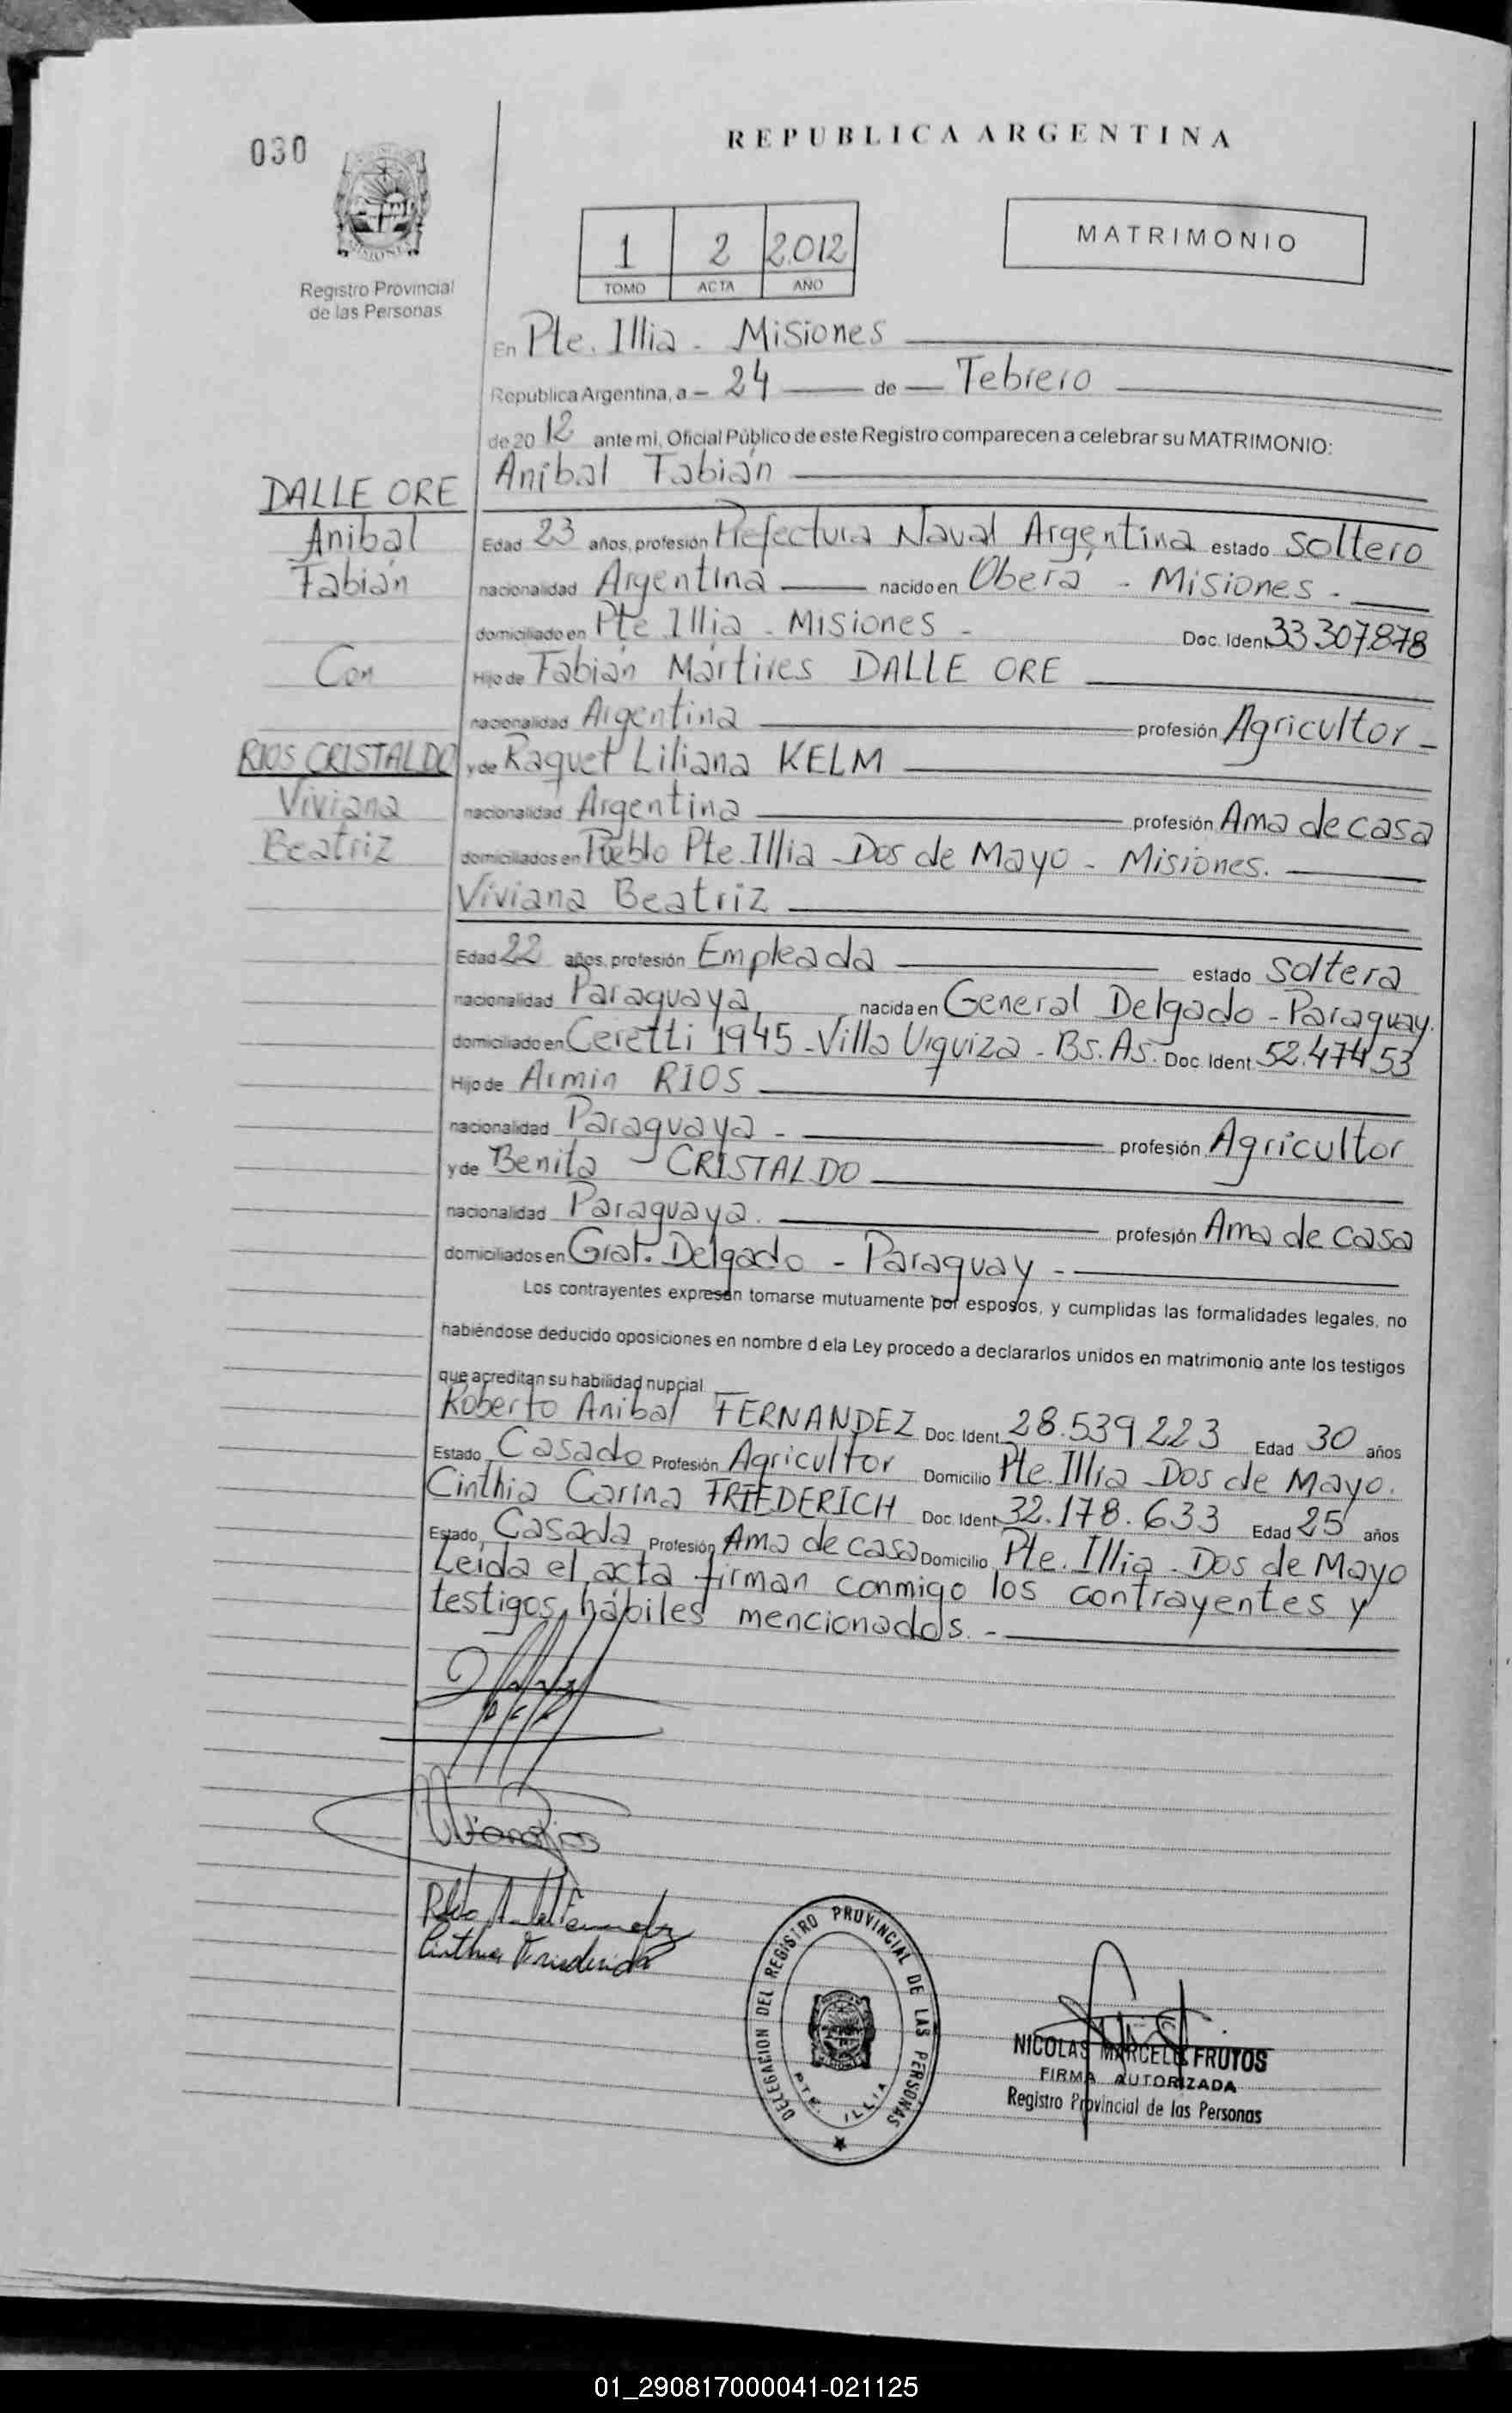 030
REPUBLICA ARGENTINA
MISIONES
Registro Provincial
de las Personas
1 2 2.012
TOMO ACTA AÑO
MATRIMONIO
En Pte. Illia - Misiones
Republica Argentina, a - 24 de Febrero
de 20 12 ante mi, Oficial Público de este Registro comparecen a celebrar su MATRIMONIO:
Aníbal Fabián
DALLE ORE
Anibal
Fabián
Con
RIOS CRISTALDO
Viviana
Beatriz
Edad 23 años, profesión Prefectura Naval Argentina estado Soltero
nacionalidad Argentina nacido en Oberá - Misiones -
domiciliado en Pte Illia - Misiones - Doc. Ident. 33 307.878
Hijo de Fabián Mártires DALLE ORE
nacionalidad Argentina profesión Agricultor -
y de Raquel Liliana KELM
nacionalidad Argentina profesión Ama de casa
domiciliados en Pueblo Pte. Illia - Dos de Mayo - Misiones.
Viviana Beatriz
Edad 22 años, profesión Empleada estado Soltera
nacionalidad Paraguaya nacida en General Delgado - Paraguay.
domiciliado en Ceretti 1945 - Villa Urquiza - Bs. As. Doc. Ident. 52.474 53
Hijo de Armin RIOS
nacionalidad Paraguaya - profesión Agricultor
y de Benita CRISTALDO
nacionalidad Paraguaya. profesión Ama de casa
domiciliados en Gral. Delgado - Paraguay -
Los contrayentes expresan tomarse mutuamente por esposos, y cumplidas las formalidades legales, no
habiéndose deducido oposiciones en nombre d ela Ley procedo a declararlos unidos en matrimonio ante los testigos
que acreditan su habilidad nupcial
Roberto Anibal FERNANDEZ Doc. Ident. 28.539.223 Edad 30 años
Estado Casado Profesión Agricultor Domicilio Pte. Illia Dos de Mayo.
Cinthia Carina FRIEDERICH Doc. Ident. 32.178.633 Edad 25 años
Estado Casada Profesión Ama de casa Domicilio Pte. Illia - Dos de Mayo
Leida el acta firman conmigo los contrayentes y
testigos hábiles mencionados. -
Cinthia Friederich
DELEGACION DEL REGISTRO PROVINCIAL DE LAS PERSONAS
PTE. ILLIA
NICOLAS MARCELO FRUTOS
FIRMA AUTORIZADA
Registro Provincial de las Personas
01_290817000041-021125